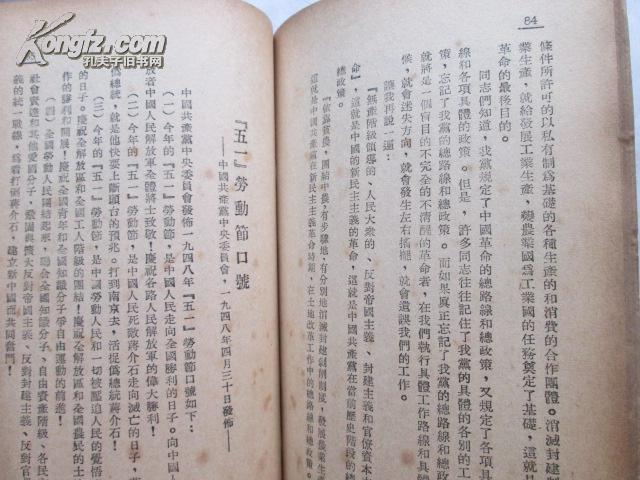 84
條件所許可的以私有制爲基礎的各種生產的和消費的合作團體。消滅封建制
業生產，就給發展工業生產，變農業國爲工業國的任務奠定了基礎，這就是
革命的最後目的。
同志們知道，我黨規定了中國革命的總路線和總政策，又規定了各項具
線和各項具體的政策。但是，許多同志往往記住了我黨的具體的各別的工作
策，忘記了我黨的總路線和總政策。而如果眞正忘記了我黨的總路線和總政
就將是一個盲目的不完全的不清醒的革命者，在我們執行具體工作路線和具
候，就會迷失方向，就會發生左右搖擺，就會遺誤我們的工作。
讓我再說一遍：
『無產階級領導的、人民大衆的、反對帝國主義、封建主義和官僚資本
命』，這就是中國的新民主主義的革命，這就是中國共產黨在當前歷史階段的
總政策。
『依靠貧農，團結中農，有步驟地、有分別地消滅封建剝削制度，發展農業生
這就是中國共產黨在新民主主義革命時期，在土地改革工作中的總路線和總政策。
『五一』勞動節口號
——中國共產黨中央委員會，一九四八年四月三十日發佈——
中國共產黨中央委員會發佈一九四八年『五一』勞動節口號如下：
（一）今年的『五一』勞動節，是中國人民走向全國勝利的日子。向中國人
放者中國人民解放軍全體將士致敬！慶祝各路人民解放軍的偉大勝利！
（二）今年的『五一』勞動節，是中國人民死敵蔣介石走向滅亡的日子，蔣
僞總統，就是他快要上斷頭台的預兆。打到南京去，活捉僞總統蔣介石！
（三）今年的『五一』勞動節，是中國勞動人民和一切被壓迫人民的覺悟
的日子。慶祝全解放區和全國工人階級的團結！慶祝全解放區和全國農民的土
作的勝利和開展！慶祝全國青年和全國知識分子爭自由運動的前進！
（四）全國勞動人民團結起來，聯合全國知識分子、自由資產階級、各民
社會賢達和其他愛國分子，鞏固與擴大反對帝國主義、反對封建主義、反對官
義的統一戰線，爲着打倒蔣介石，建立新中國而共同奮鬥！
Kongfz.com
孔夫子旧书网